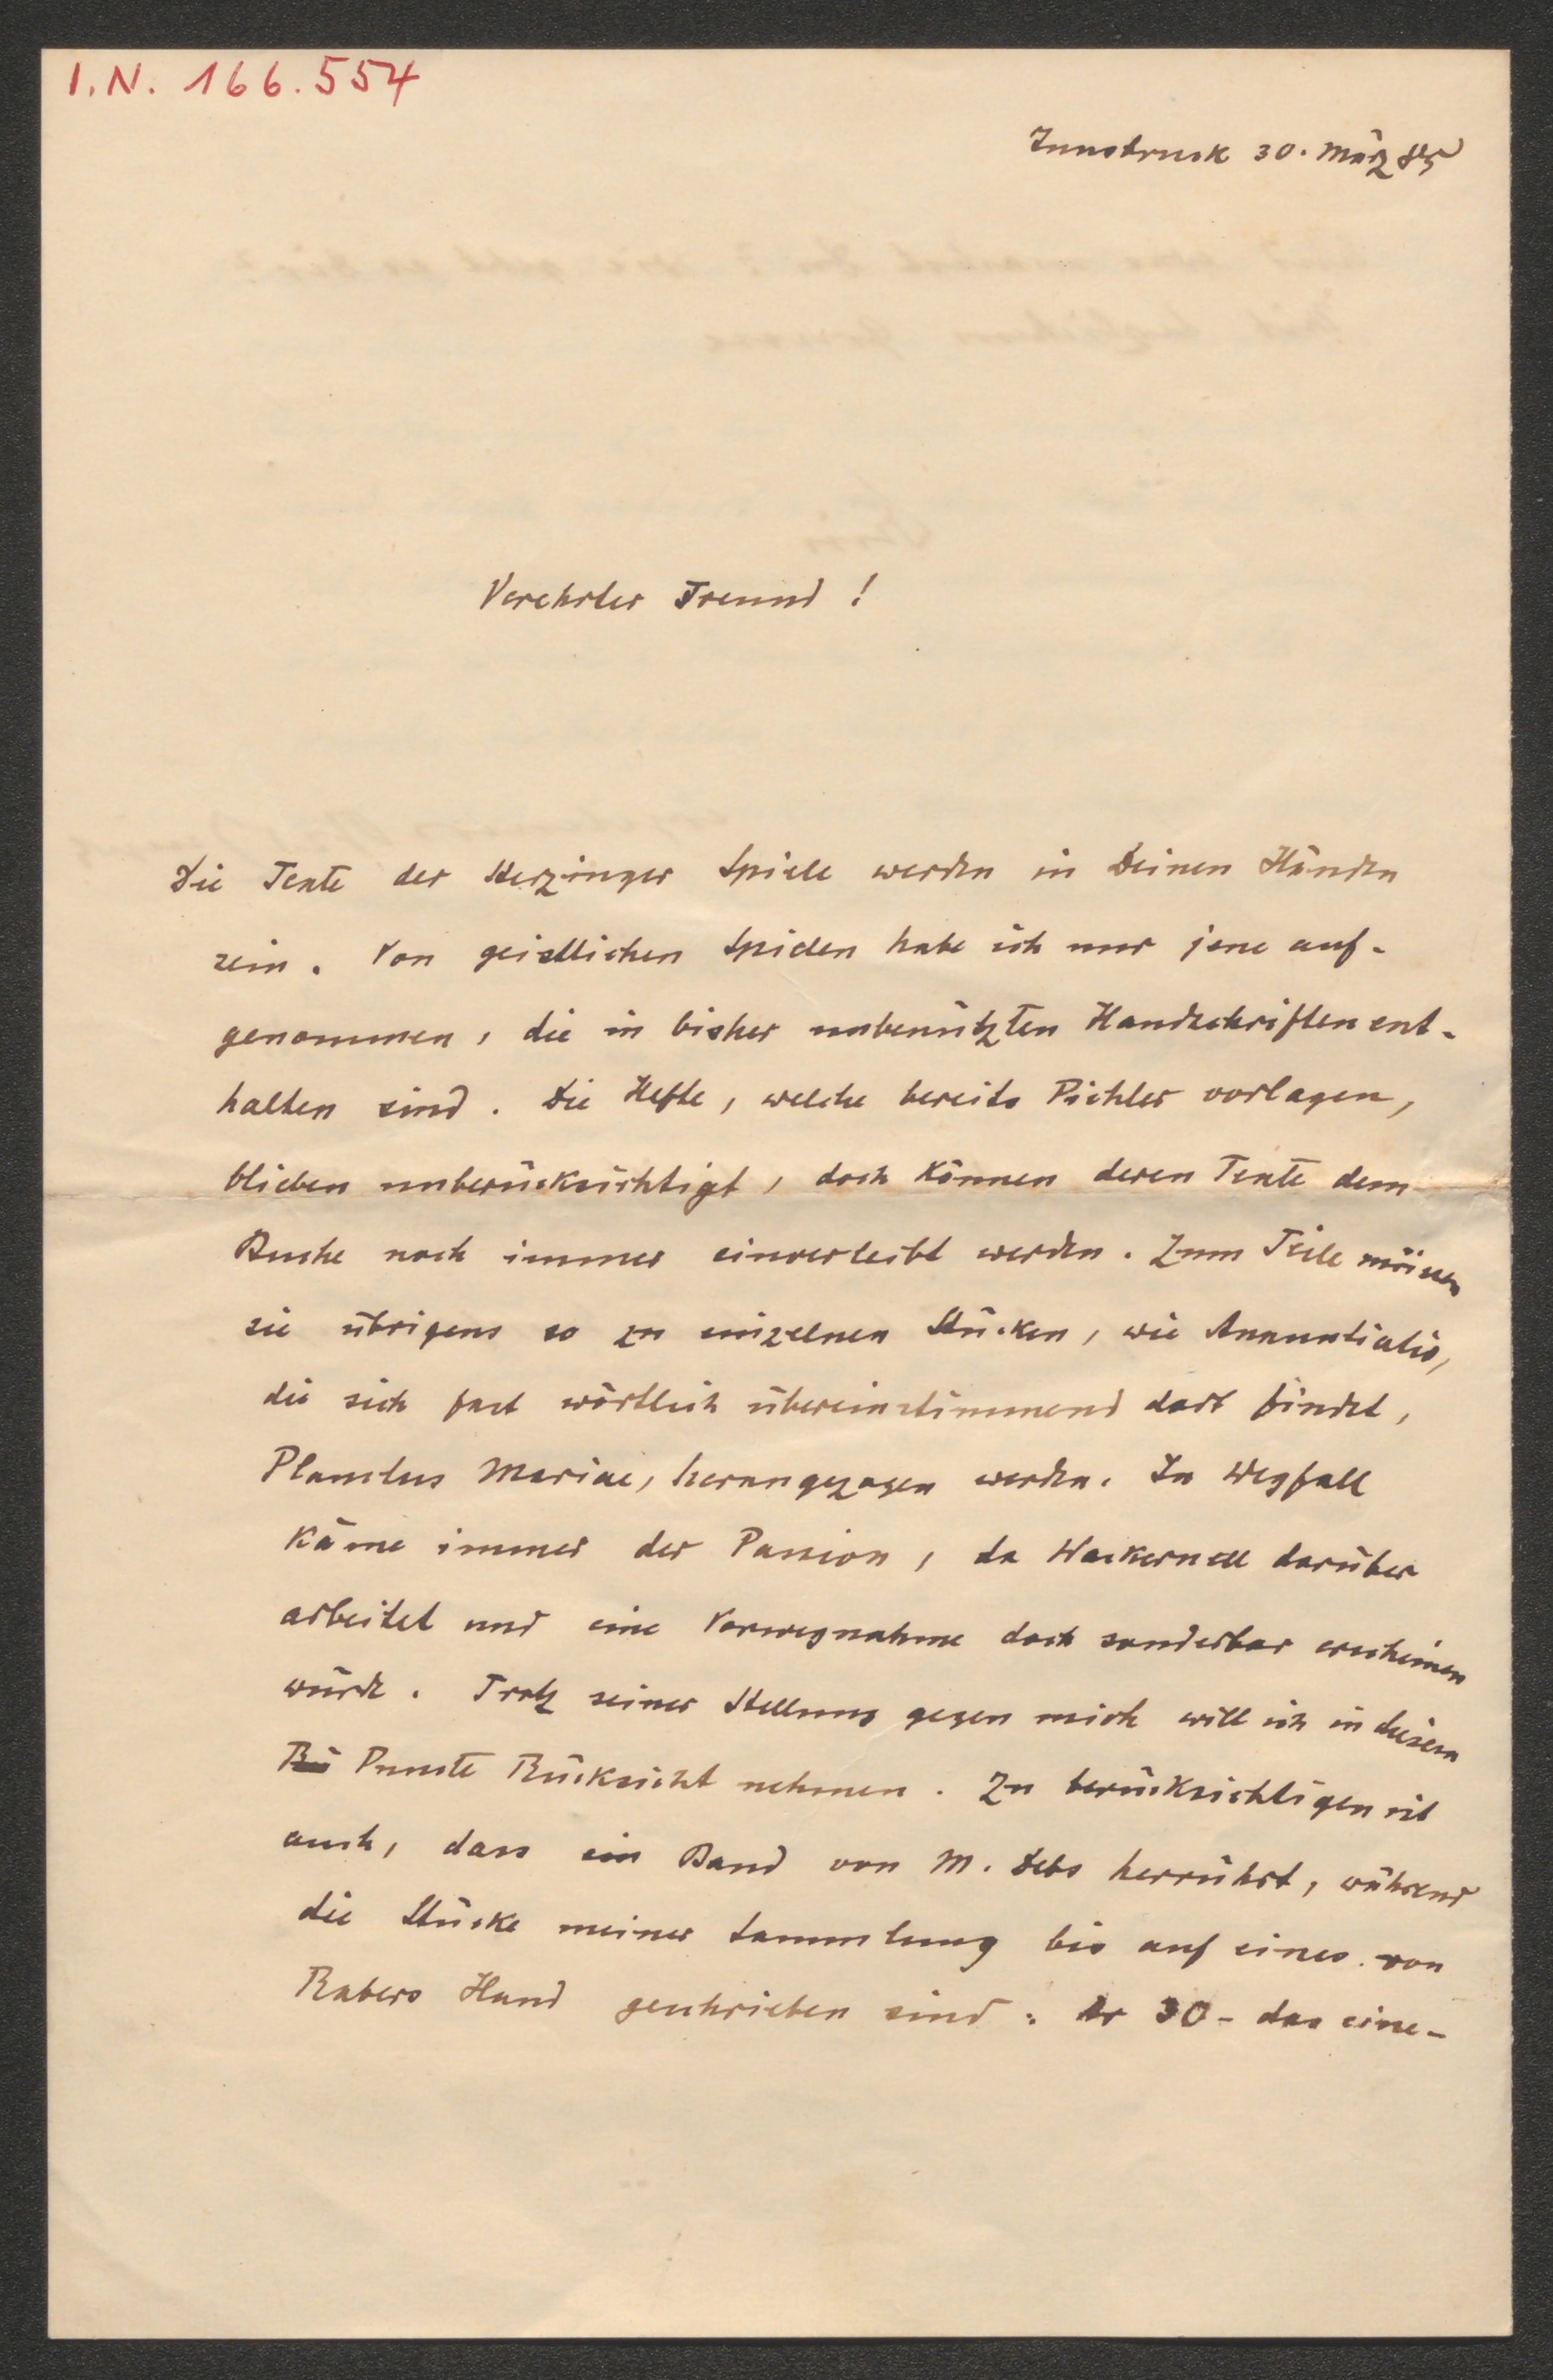 I.N. 166.554
Innsbruck 30. März 85
Verehrter Freund !
Die Texte der Sterzinger Spiele werden in Deinen Händen
sein. Von geistlichen Spielen habe ich nur jene auf-
genommen, die in bisher unbenützten Handschriften ent-
halten sind. Die Hefte, welche bereits Pichler vorlagen,
blieben unberücksichtigt, doch können deren Texte dem
Buche noch immer einverleibt werden. Zum Teile müssen
sie übrigens so zu einzelnen Stücken, wie Annuntiatio,
die sich fast wörtlich übereinstimmend dort findet,
Planctus Mariae, herangezogen werden. In Wegfall
käme immer der Passion, da Wackernell darüber
arbeitet und eine Vorwegnahme doch sonderbar erscheinen
würde. Trotz seiner Stellung gegen mich will ich in diesem
Puncte Rücksicht nehmen. Zu berücksichtigen ist
auch, dass ein Band von M. Debs herrührt, während
die Stücke meiner Sammlung bis auf eines von
Rabers Hand geschrieben sind. Ar 30 - das eine -